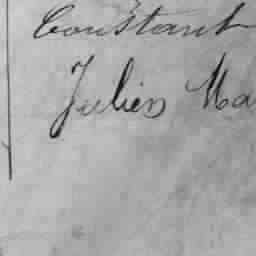 Constant
Julien Ma